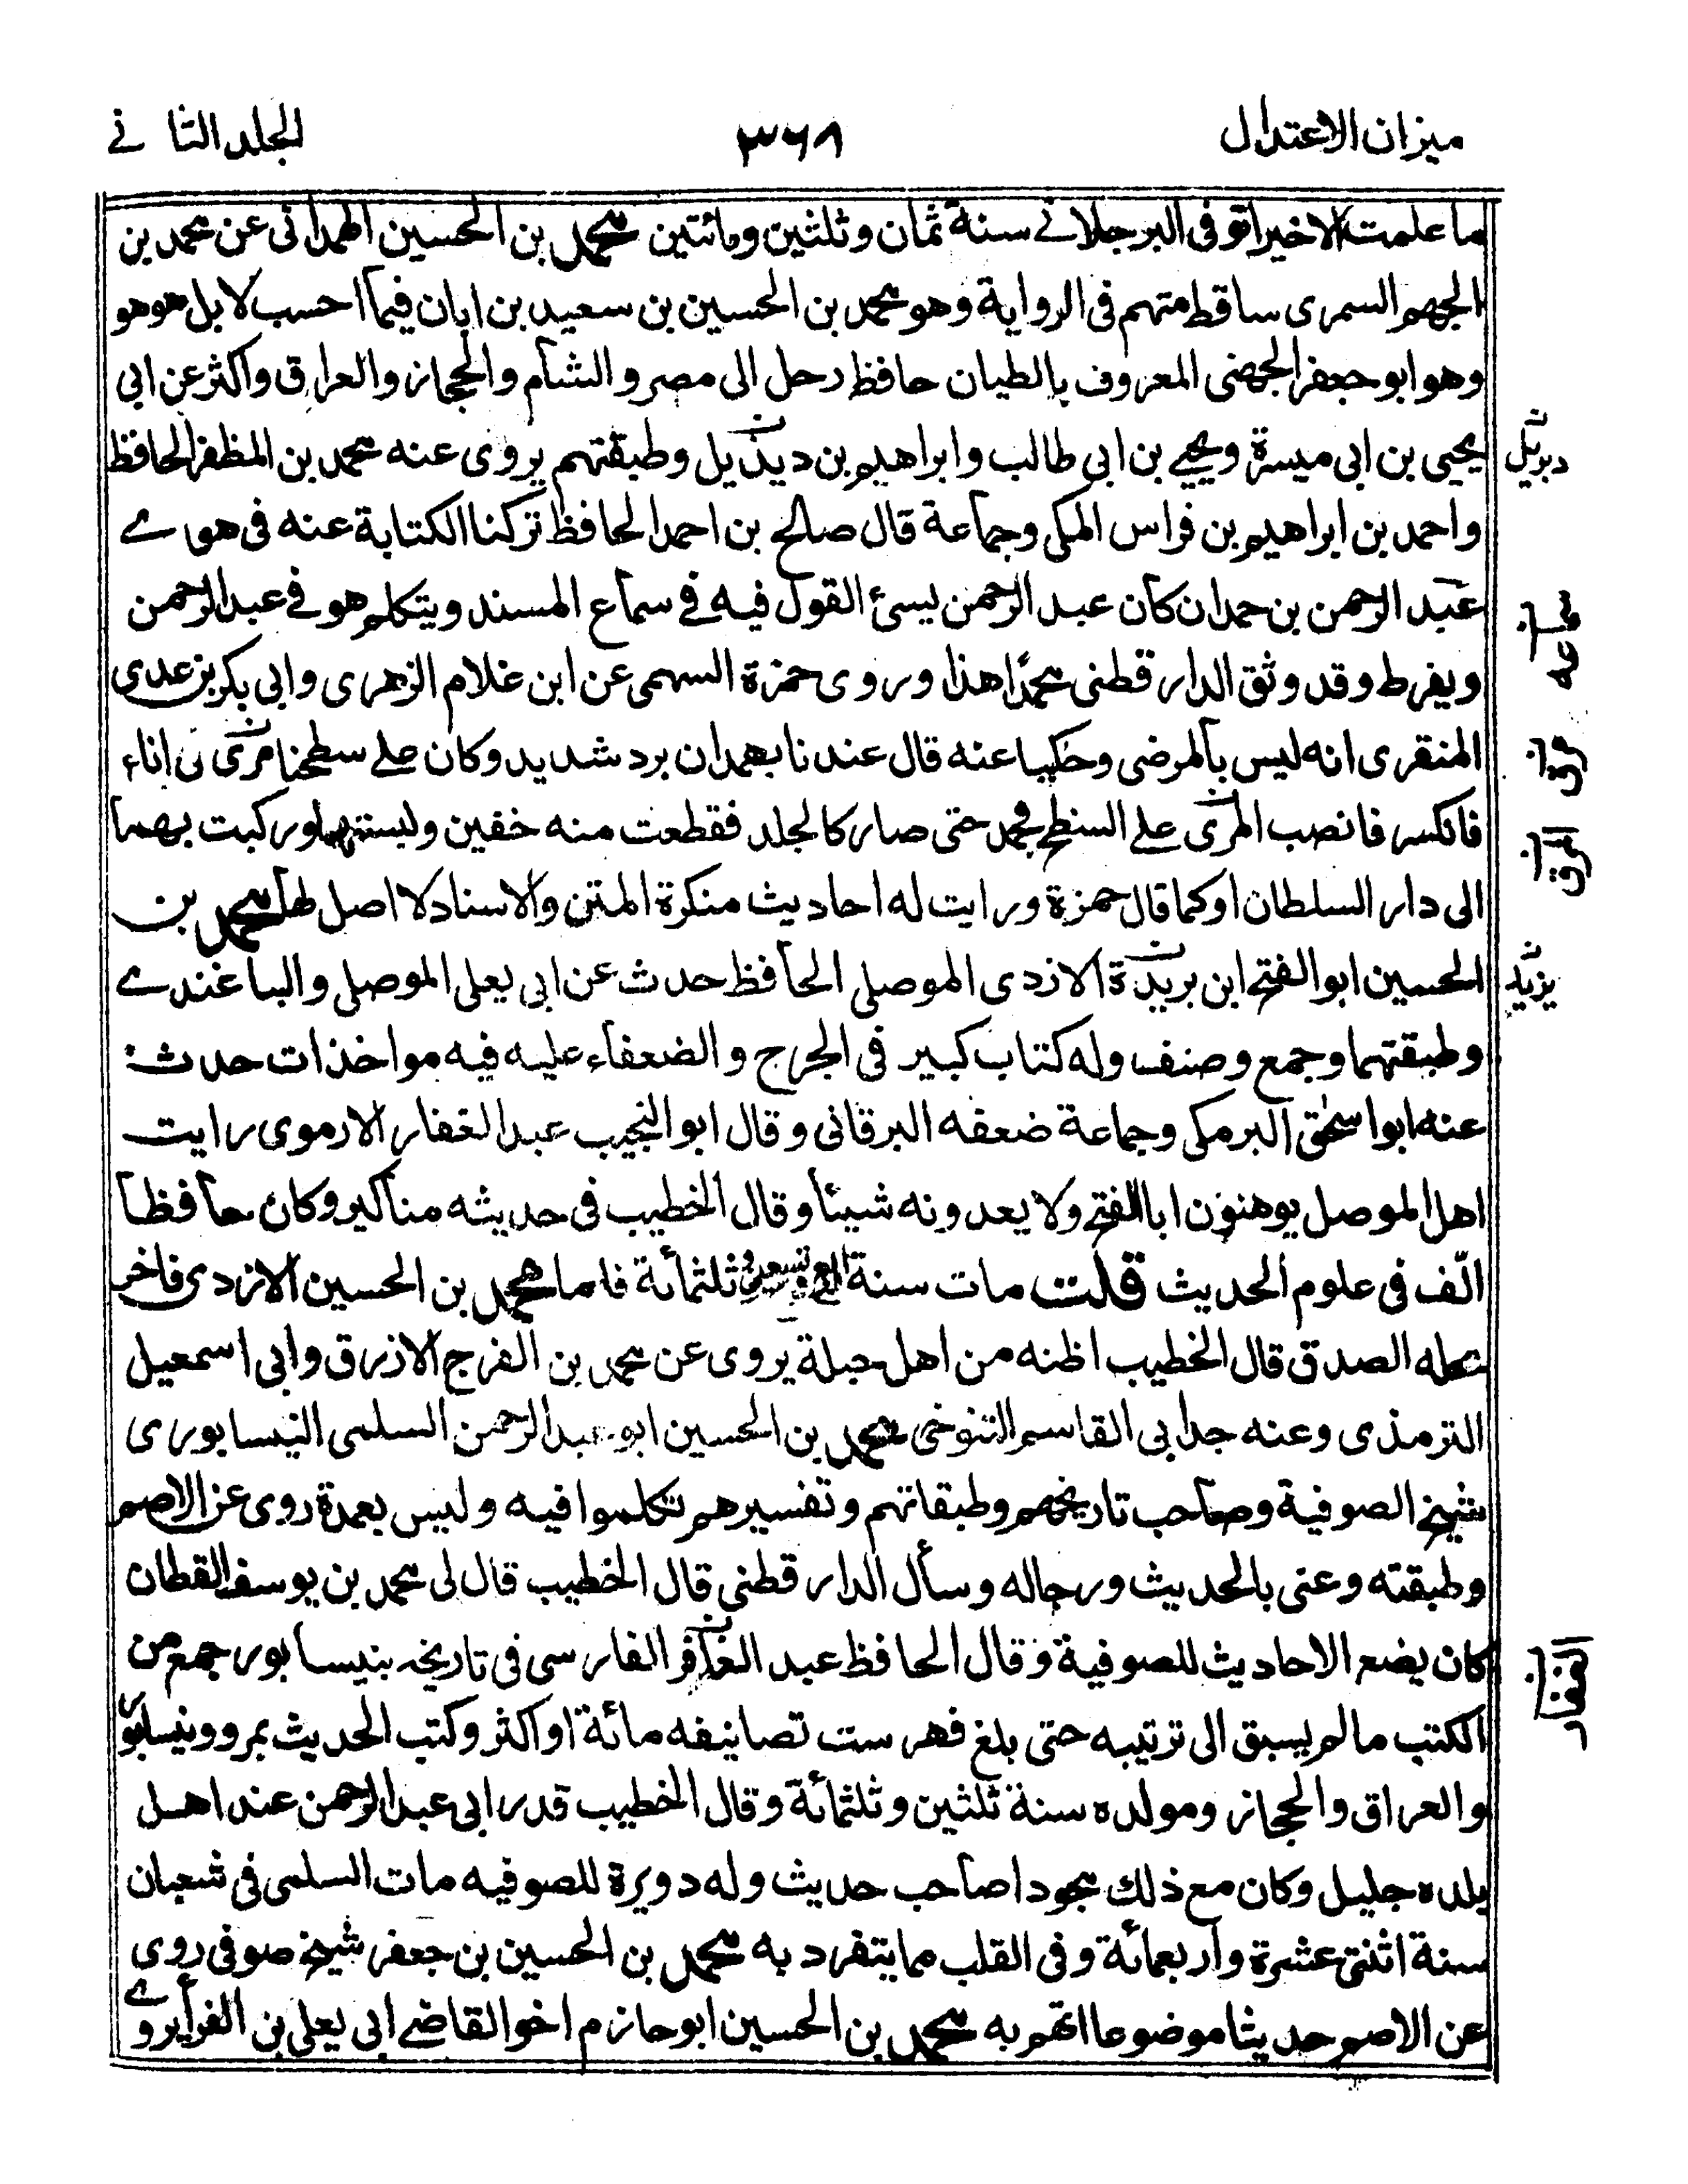 ميزان الاعتدال
٣٦٨
الجلد الثاني
ما علمت الاخيرا توفى البرجلاني سنة ثمان وثلثين ومائتين محمد بن الحسين الهمدانى عن محمد بن
الجهم السمرى ساقط متهم فى الرواية وهو محمد بن الحسين بن سعيد بن ابان فيما احسب لا بل هو هو
وهو ابو جعفر الجهضى المعروف بالطيان حافظ رحل الى مصر والشام والحجاز والعراق واكثر عن ابى
يحيى بن ابى ميسرة ويحيى بن ابى طالب وابراهيم بن ديذيل وطبقتهم يروى عنه محمد بن المظفر الحافظ
ديزيل
واحمد بن ابراهيم بن فراس المكى وجماعة قال صالح بن احمد الحافظ تركنا الكتابة عنه فى هوى
عبد الرحمن بن حمدان كان عبد الرحمن يسئ القول فيه فى سماع المسند ويتكلم هو فى عبد الرحمن
سماعه
ويفرط وقد وثق الدارقطنى محمدا هذا وروى حمزة السهمى عن ابن غلام الزهرى وابى بكر بن عدى
المنقرى انه ليس بالمرضى وحكيا عنه قال عندنا بهمدان برد شديد وكان على سطحنا مرى فى اناء
مرق
فانكسر فانصب المرى على السطح فجمد حتى صار كالجلد فقطعت منه خفين ولبستهما وركبت بهما
المرق
الى دار السلطان او كما قال حمزة ورايت له احاديث منكرة المتن والاسناد لا اصل لها محمد بن
الحسين ابو الفتح ابن بريدة الازدى الموصلى الحافظ حدث عن ابى يعلى الموصلى والباغندى
يزيد
وطبقتهما وجمع وصنف وله كتاب كبير فى الجرح والضعفاء عليه فيه مواخذات حدث
عنه ابو اسحق البرمكى وجماعة ضعفه البرقانى وقال ابو النجيب عبد الغفار الارموى رايت
اهل الموصل يوهنون ابا الفتح ولا يعدونه شيئا وقال الخطيب فى حديثه مناكير وكان حافظا
الّف فى علوم الحديث قلت مات سنة اربع وسبعين وثلثمائة فاما محمد بن الحسين الازدى فاخر
محله الصدق قال الخطيب اظنه من اهل جبلة يروى عن محمد بن الفرج الازرق وابى اسمعيل
الترمذى وعنه جد ابى القاسم التنوخى محمد بن الحسين ابو عبد الرحمن السلمى النيسابورى
شيخ الصوفية وصاحب تاريخهم وطبقاتهم وتفسيرهم تكلموا فيه وليس بعمدة روى عن الاصم
وطبقته وعنى بالحديث ورجاله وسأل الدارقطنى قال الخطيب قال لى محمد بن يوسف القطان
كان يضع الاحاديث للصوفية وقال الحافظ عبد الغافر الفارسى فى تاريخه بنيسابور جمع من
الغفار
الكتب ما لم يسبق الى ترتيبه حتى بلغ فهرست تصانيفه مائة او اكثر وكتب الحديث بمرو ونيسابور
والعراق والحجاز ومولده سنة ثلثين وثلثمائة وقال الخطيب قدر ابى عبد الرحمن عند اهل
بلده جليل وكان مع ذلك مجودا صاحب حديث وله دويرة للصوفيه مات السلمى فى شعبان
سنة اثنتى عشرة واربعمائة وفى القلب مما يتفرد به محمد بن الحسين بن جعفر شيخ صوفى روى
عن الاصم حديثا موضوعا اتهم به محمد بن الحسين ابو حازم اخو القاضى ابى يعلى بن الفرأ يروى